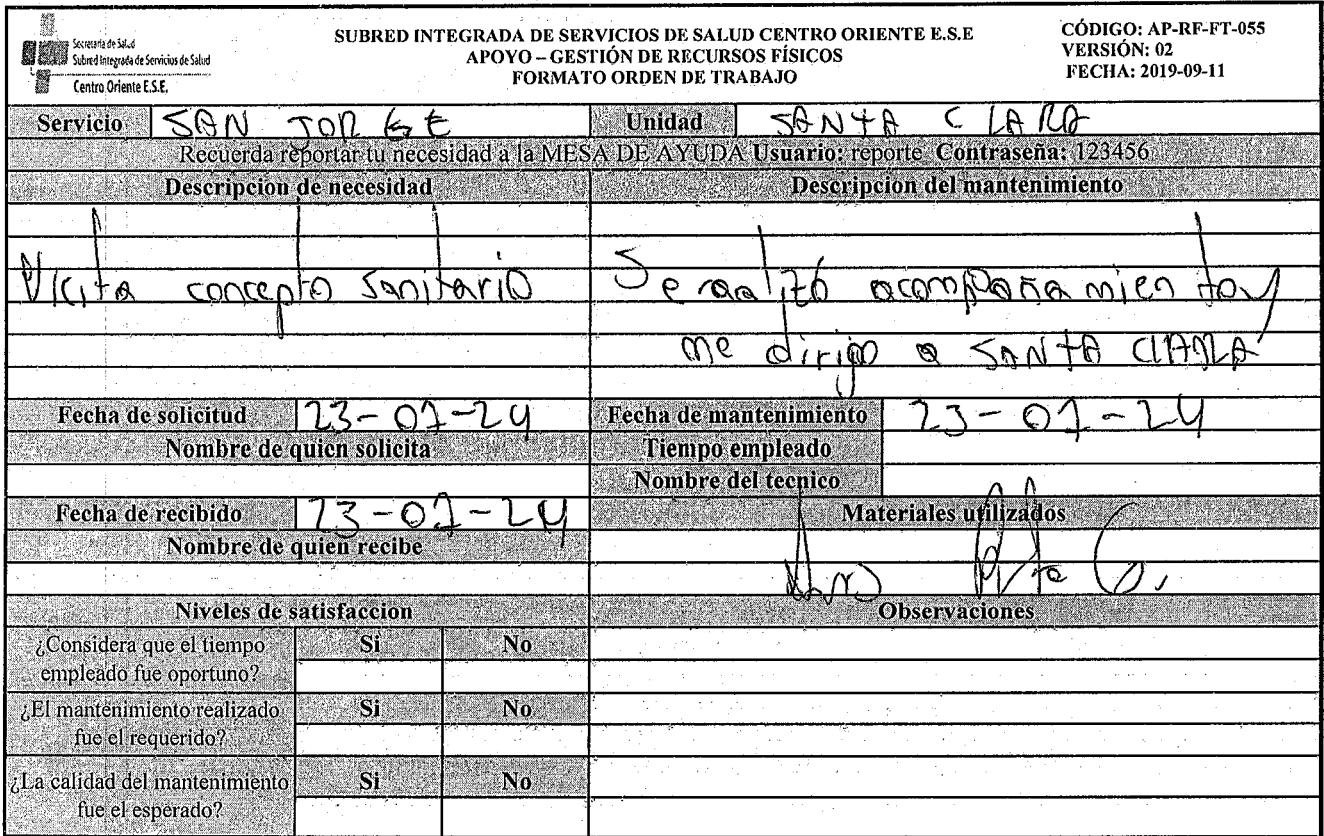 Secretaría de Salud
Subred Integrada de Servicios de Salud
Centro Oriente E.S.E.
SUBRED INTEGRADA DE SERVICIOS DE SALUD CENTRO ORIENTE E.S.E
APOYO – GESTIÓN DE RECURSOS FÍSICOS
FORMATO ORDEN DE TRABAJO
CÓDIGO: AP-RF-FT-055
VERSIÓN: 02
FECHA: 2019-09-11
Servicio SAN JORGE Unidad SANTA CLARA
Recuerda reportar tu necesidad a la MESA DE AYUDA Usuario: reporte Contraseña: 123456
Descripcion de necesidad Descripcion del mantenimiento
Vicita concepto Sanitario Se realizó acompañamiento y
me dirijo a SANTA CLARA
Fecha de solicitud 23-01-24 Fecha de mantenimiento 23-01-24
Nombre de quien solicita Tiempo empleado
Nombre del tecnico
Fecha de recibido 23-01-24 Materiales utilizados
Nombre de quien recibe
Niveles de satisfaccion Observaciones
¿Considera que el tiempo empleado fue oportuno? Si No
¿El mantenimiento realizado fue el requerido? Si No
¿La calidad del mantenimiento fue el esperado? Si No